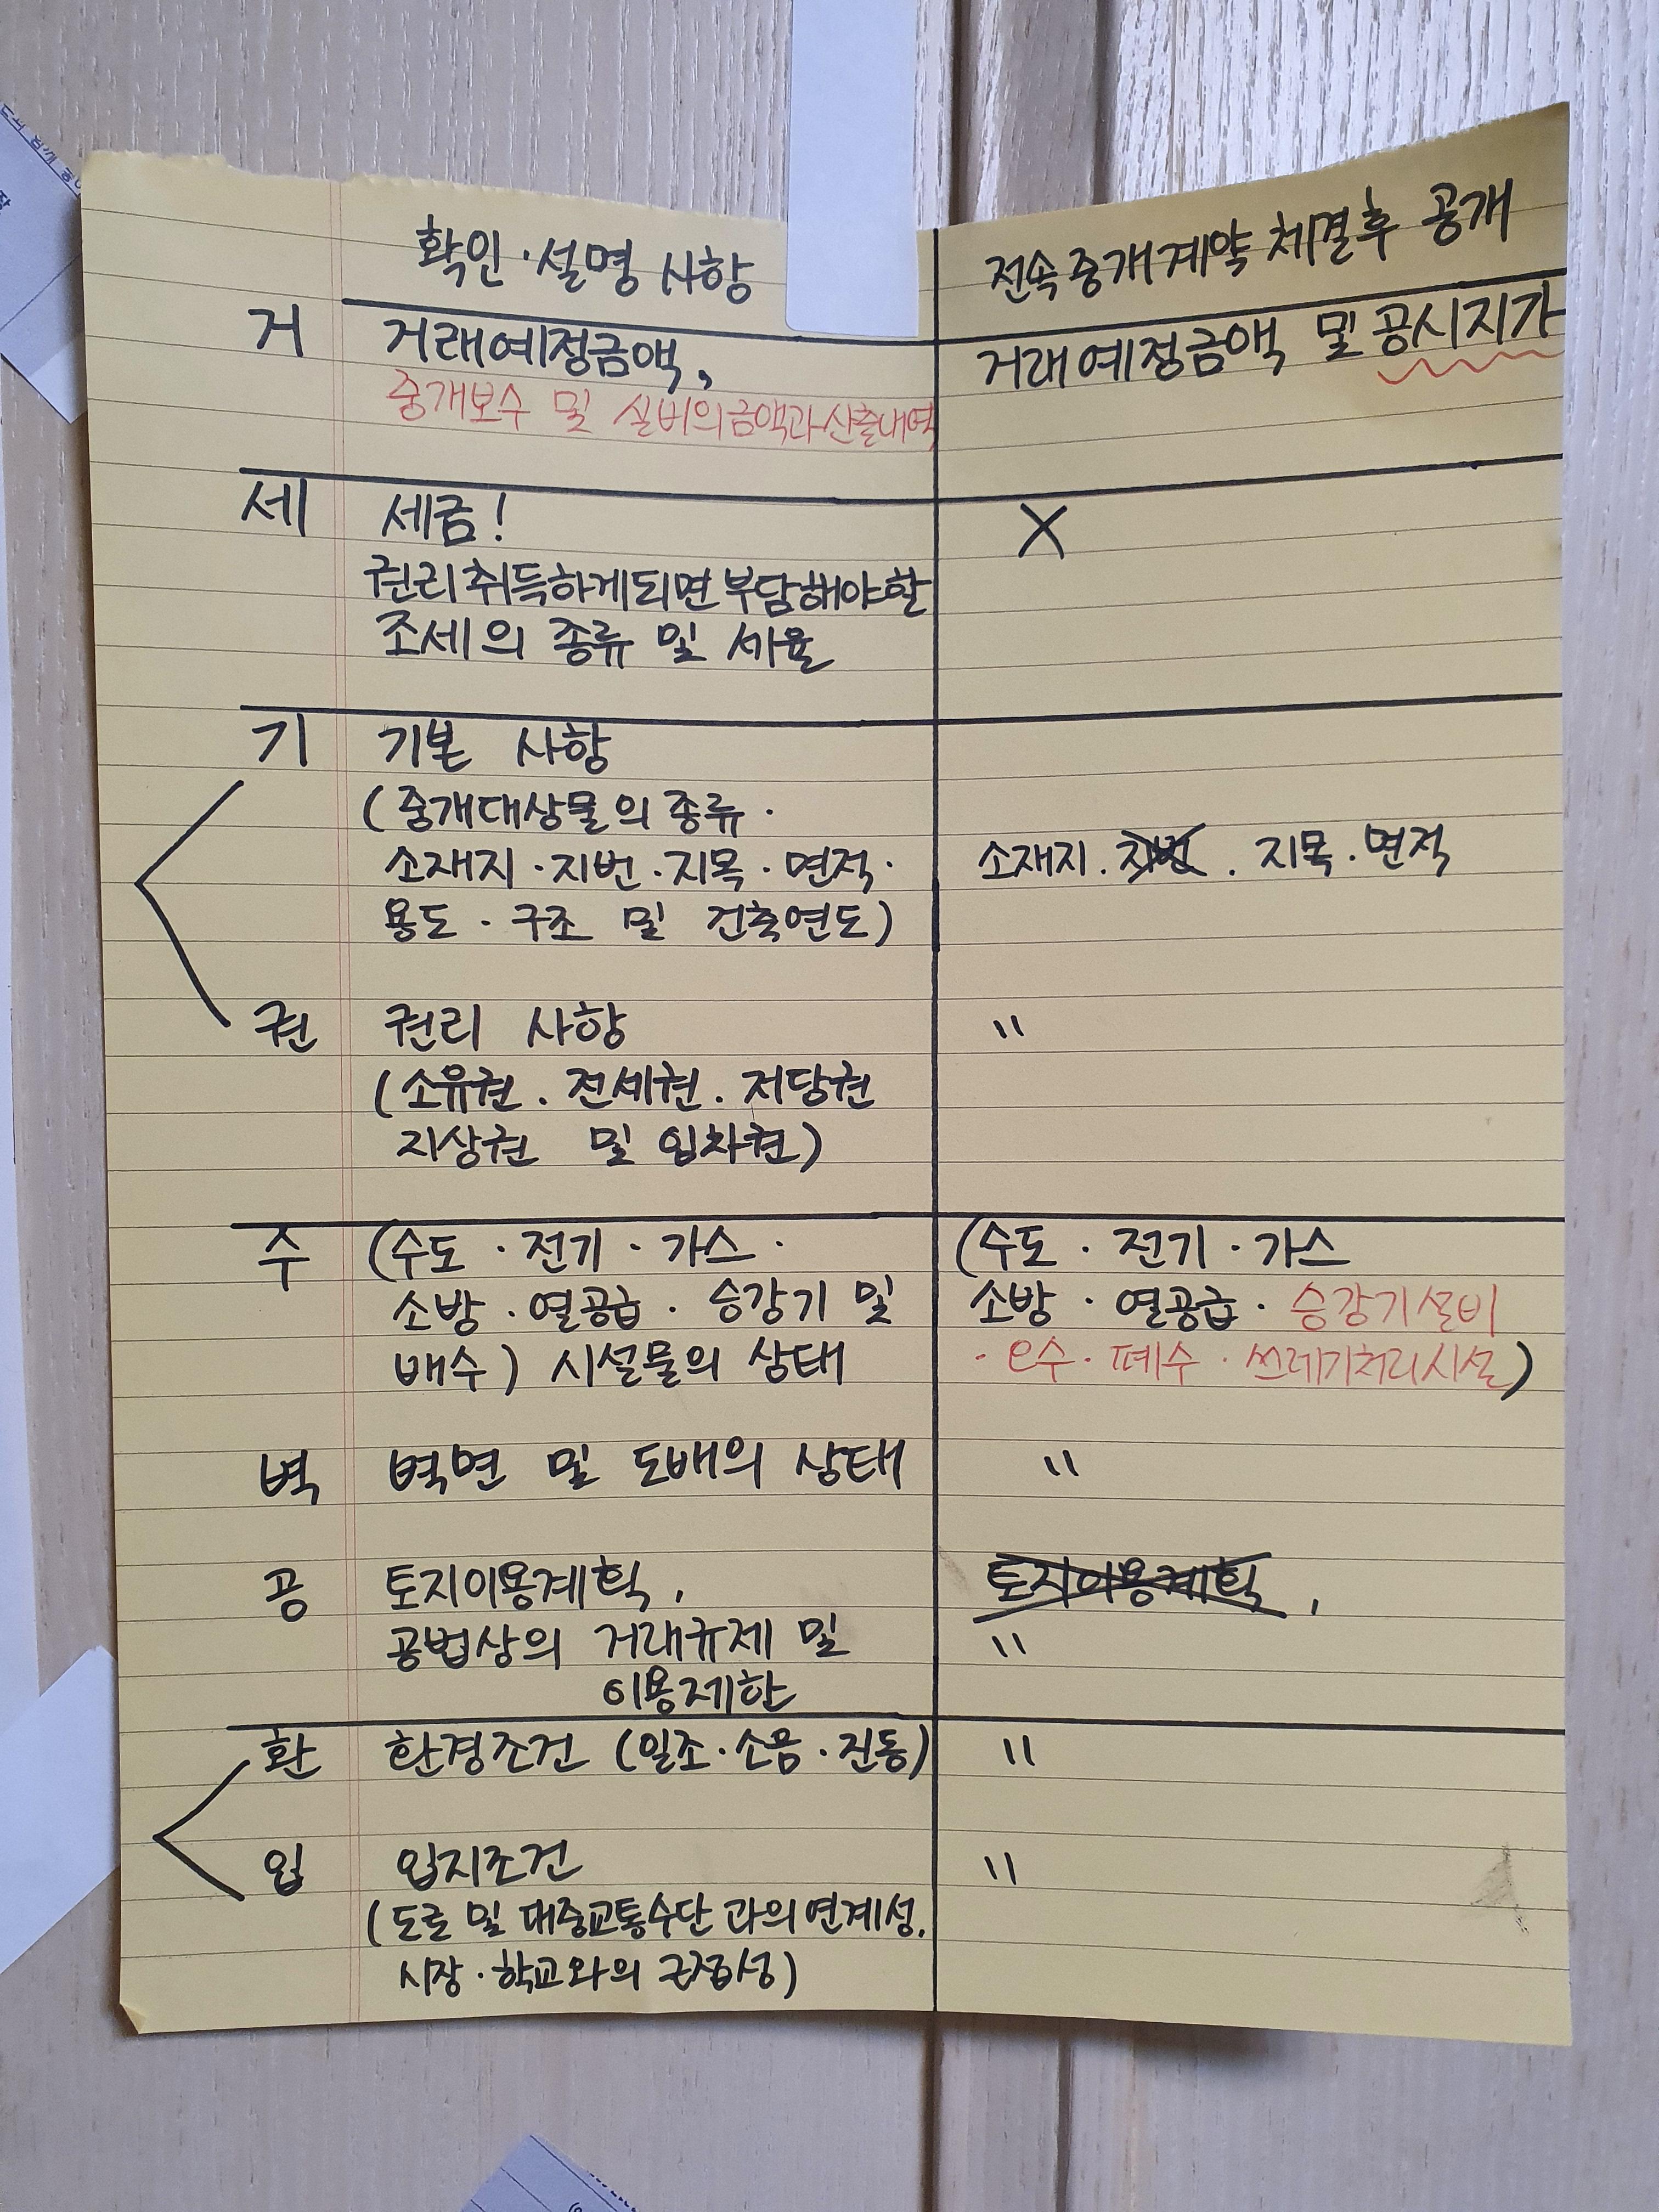 확인·설명 사항
전속중개계약 체결후 공개
거 거래예정금액,
중개보수 및 실비의금액과산출내역
거래예정금액 및 공시지가
세 세금!
권리취득하게되면부담해야할
조세의 종류 및 세율
X
기 기본 사항
(중개대상물의 종류·
소재지·지번·지목·면적·
용도·구조 및 건축연도)
소재지.지번.지목.면적
권 권리 사항
(소유권.전세권.저당권
지상권 및 임차권)
"
주 (수도·전기·가스·
소방·열공급·승강기 및
배수) 시설물의 상태
(수도·전기·가스
소방·열공급·승강기설비
·오수·폐수·쓰레기처리시설)
벽 벽면 및 도배의 상태
"
공 토지이용계획,
공법상의 거래규제 및
이용제한
토지이용계획,
"
환 환경조건 (일조·소음·진동)
"
입 입지조건
(도로 및 대중교통수단과의연계성,
시장·학교와의 근접성)
"